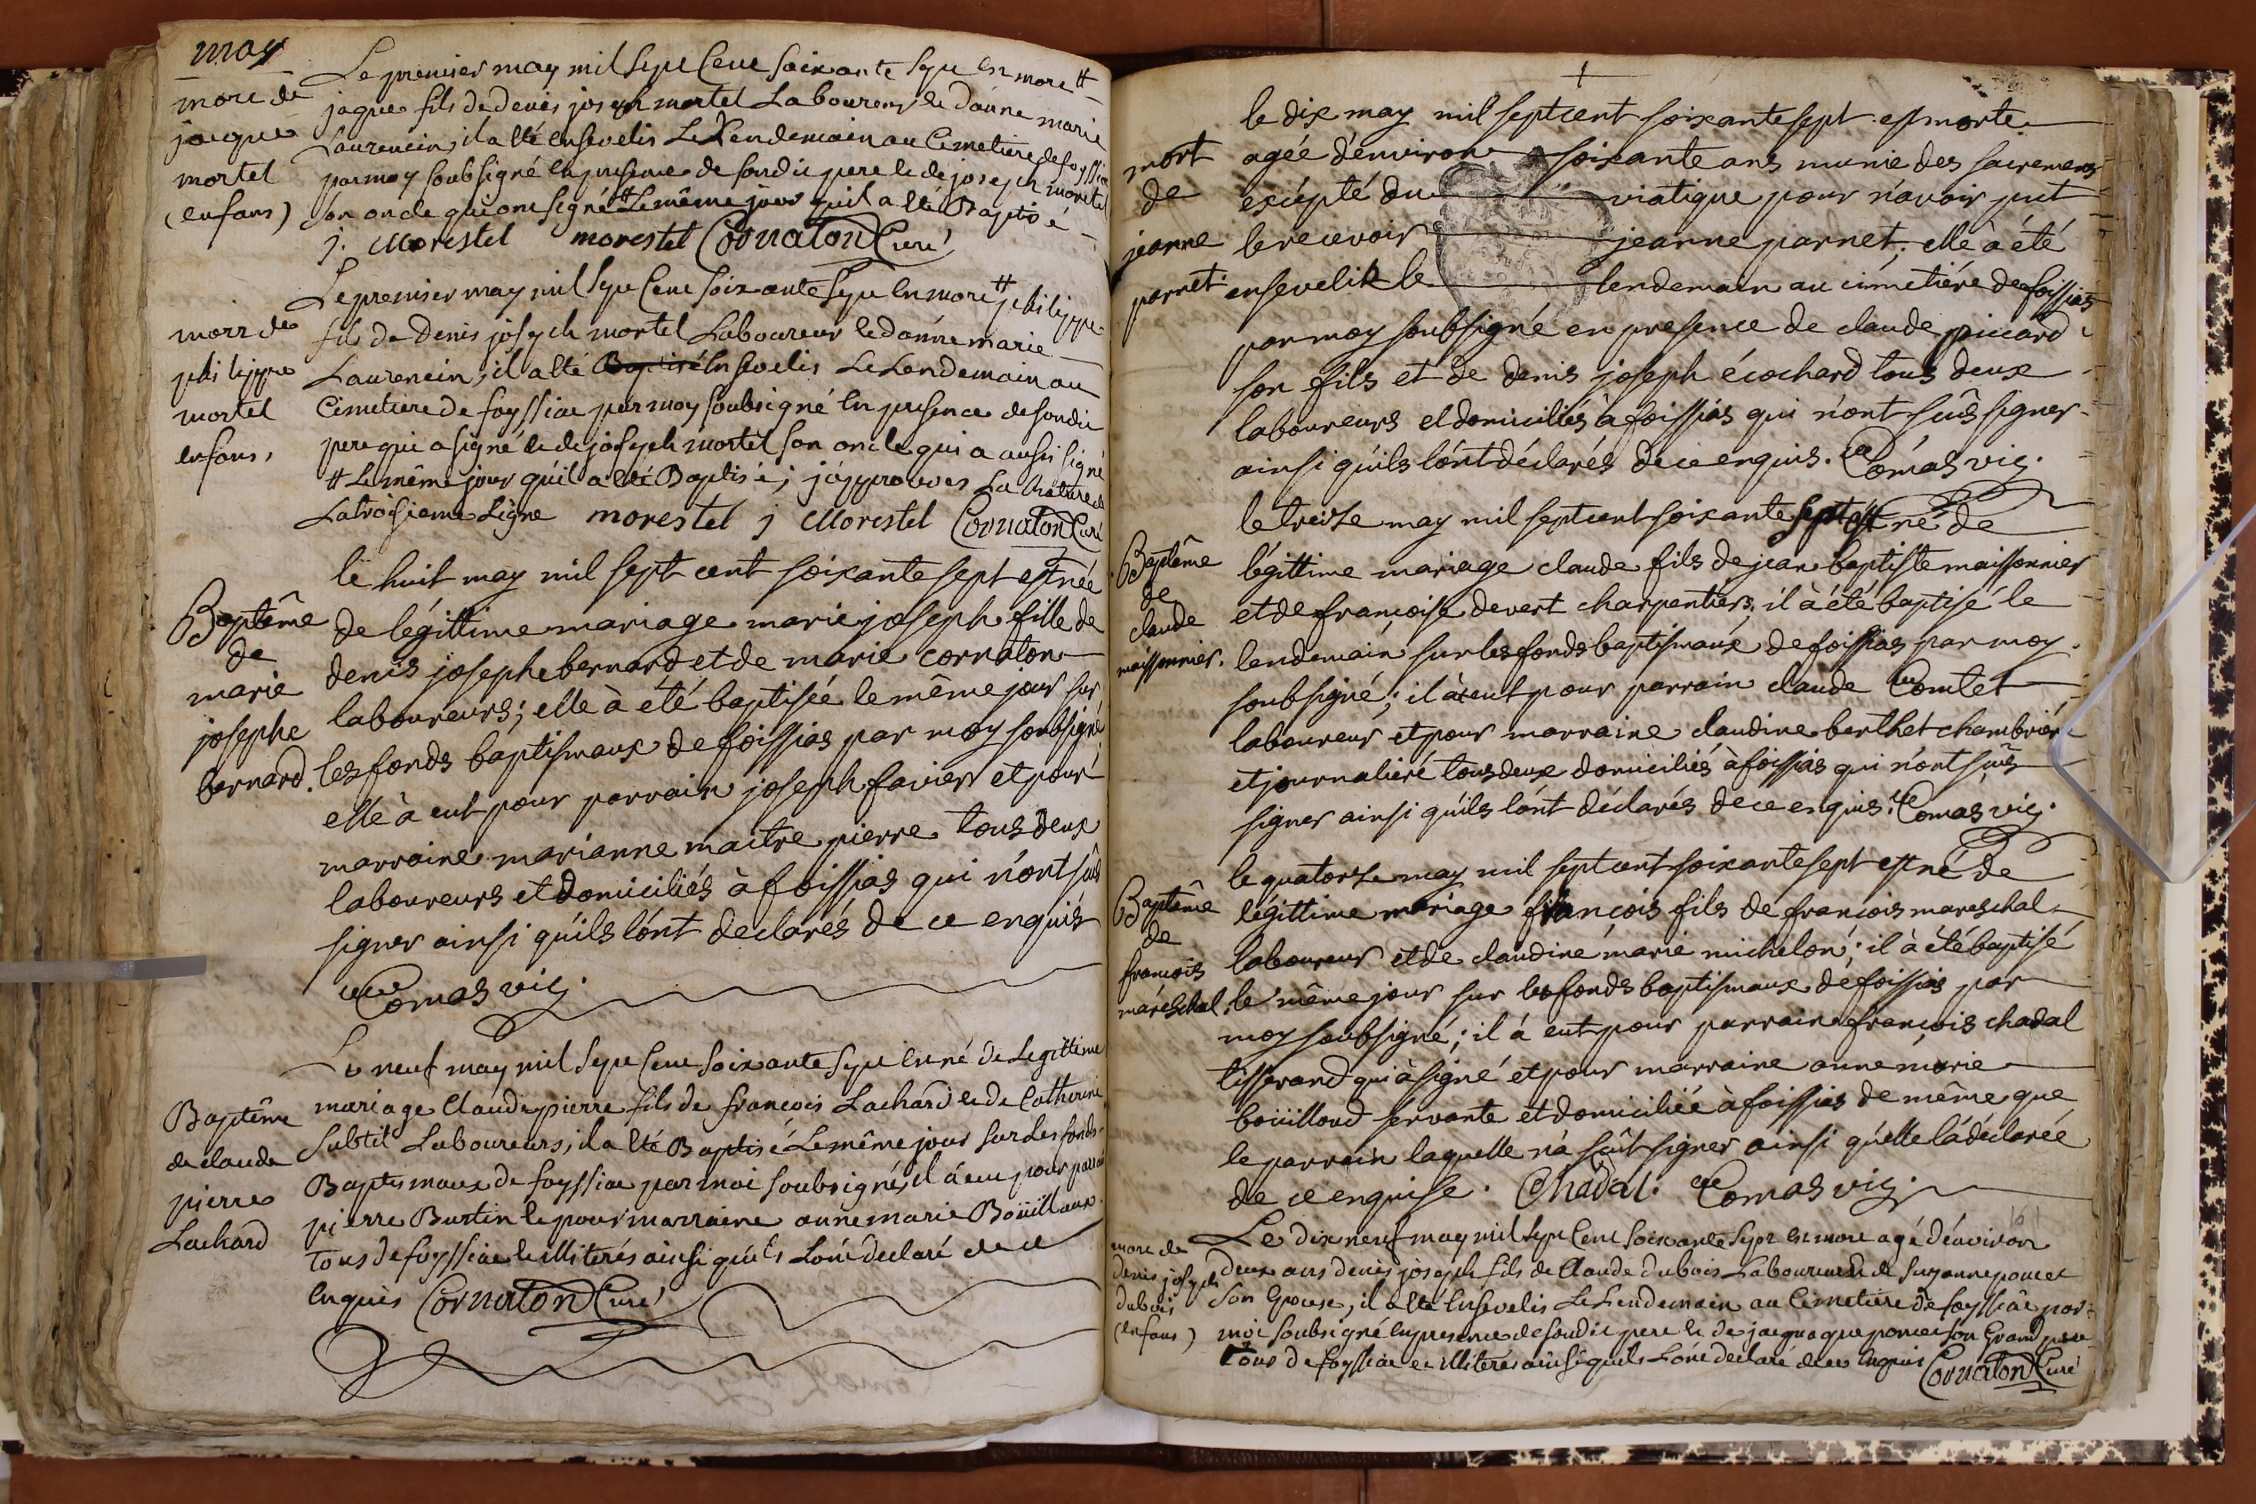 may
Le premier may mil sept cent soixante sept est mort #
mort de
jaque
mortel
(enfans)
jaque fils de denis joseph mortel Laboureur et danne marie
Laurencin; il a été ensevelis Le Lendemain au Cimetiere de foyssia
par moy soubsigné en presence de sondit pere et de joseph mortel
son oncle qui ont signé # Le même jour quil a été Baptisé
j. Morestel morestel Cornaton Curé
Le premier may mil sept cent soixante sept est mort # philippe
mort de
philippe
mortel
enfans,
fils de Denis joseph mortel Laboureur et danne marie
Laurencin; il a été Baptisé Ensevelis Le Lendemain au
Cimetiere de foyssiae par moy soubsigné en presence de sondit
pere qui a signé et de joseph mortel son oncle qui a aussi signé
# Le même jour qu'il a été Baptisé; j'approuves La Rature de
La troisieme Ligne morestel j Morestel Cornaton Curé
le huit may mil sept cent soixante sept est née
Baptême
de
marie
josephe
bernard.
de légittime mariage marie joseph fille de
denis josephe bernard et de marie cornaton
laboureurs; elle à été baptisée le même jour sur
les fonds baptismaux de foissias par moy soubsigné
elle à eut pour parrain joseph favier et pour
marraine marianne maitre pierre tous deux
laboureurs et domiciliés à foissias qui n'ont sûs
signer ainsi qu'ils lónt declarés de ce enquis
Comas vic.
Le neuf may mil sept cent soixante sept est né de Legittime
Baptême
de claude
pierre
Lachard
mariage Claude pierre fils de françois Lachard et de Catherine
Subtil Laboureurs; il a été Baptisé Le même jour sur Les fonds
Baptismaux de foyssiae par moi soubsigné, il á eu pour parrain
pierre Burtin et pour marraine anne marie Boüillaux
Tous de foyssiae et illiterés ainsi qu'ils Lont declaré de ce
Enquis Cornaton Curé
le dix may mil sept cent soixante sept est morte
mort
de
jeanne
parnet
agée d'environ soixante ans munie des sacremens
exépté du viatique pour n'avoir put
le recevoir jeanne parnet; elle à été
ensevelit le lendemain au cimétiére de foissias
par moy soubsigné en presence de claude piccard
son fils et de denis joseph écochard tous deux
laboureurs et domiciliés à foissias qui n'ont sûs signer
ainsi qu'ils lónt déclarés de ce enquis. Comas vic.
le treize may mil sept cent soixante sept est né de
Baptême
de
claude
maissonnier.
légittime mariage claude fils de jean baptiste maissonnier
et de françoise devert charpentiers; il à été baptisé le
lendemain sur les fonds baptismaux de foissias par moy
soubsigné; il à eut pour parrain claude Comtet
laboureur et pour marraine claudine berthet chambriére
et journaliere tous deux domiciliés à foissias qui n'ont sûs
signer ainsi qu'ils lónt déclarés de ce enquis. Comas vic.
le quatorze may mil sept cent soixante sept est né de
Baptême
de
françois
máreschal.
légittime mariage françois fils de françois mareschal
laboureur et de claudine marie michelon; il à été baptisé
le même jour sur les fonds baptismaux de foissias par
moy soubsigné; il á eut pour parrain françois chadal
tisserand qui à signé et pour marraine anne marie
boüilloud servante et domiciliée à foissias de même que
le parrain laquelle n'à sûit signer ainsi qu'elle lá déclarée
de ce enquise. Chadal. Comas vic.
Le dix neuf may mil sept Cent soixante sept est mort agé d'environ
mort de
denis joseph
dubois
(enfans)
deux ans denis joseph fils de Claude dubois Laboureur et de suzanne poncet
son Epouse, il a été Ensevelis Le Lendemain au Cimetiere de foyssiae par
moi soubsigné en presence de sondit pere et de poncet son Grand pere
tous de foyssiae et illiterés ainsi quils Lont declaré de ce Enquis Cornaton Curé